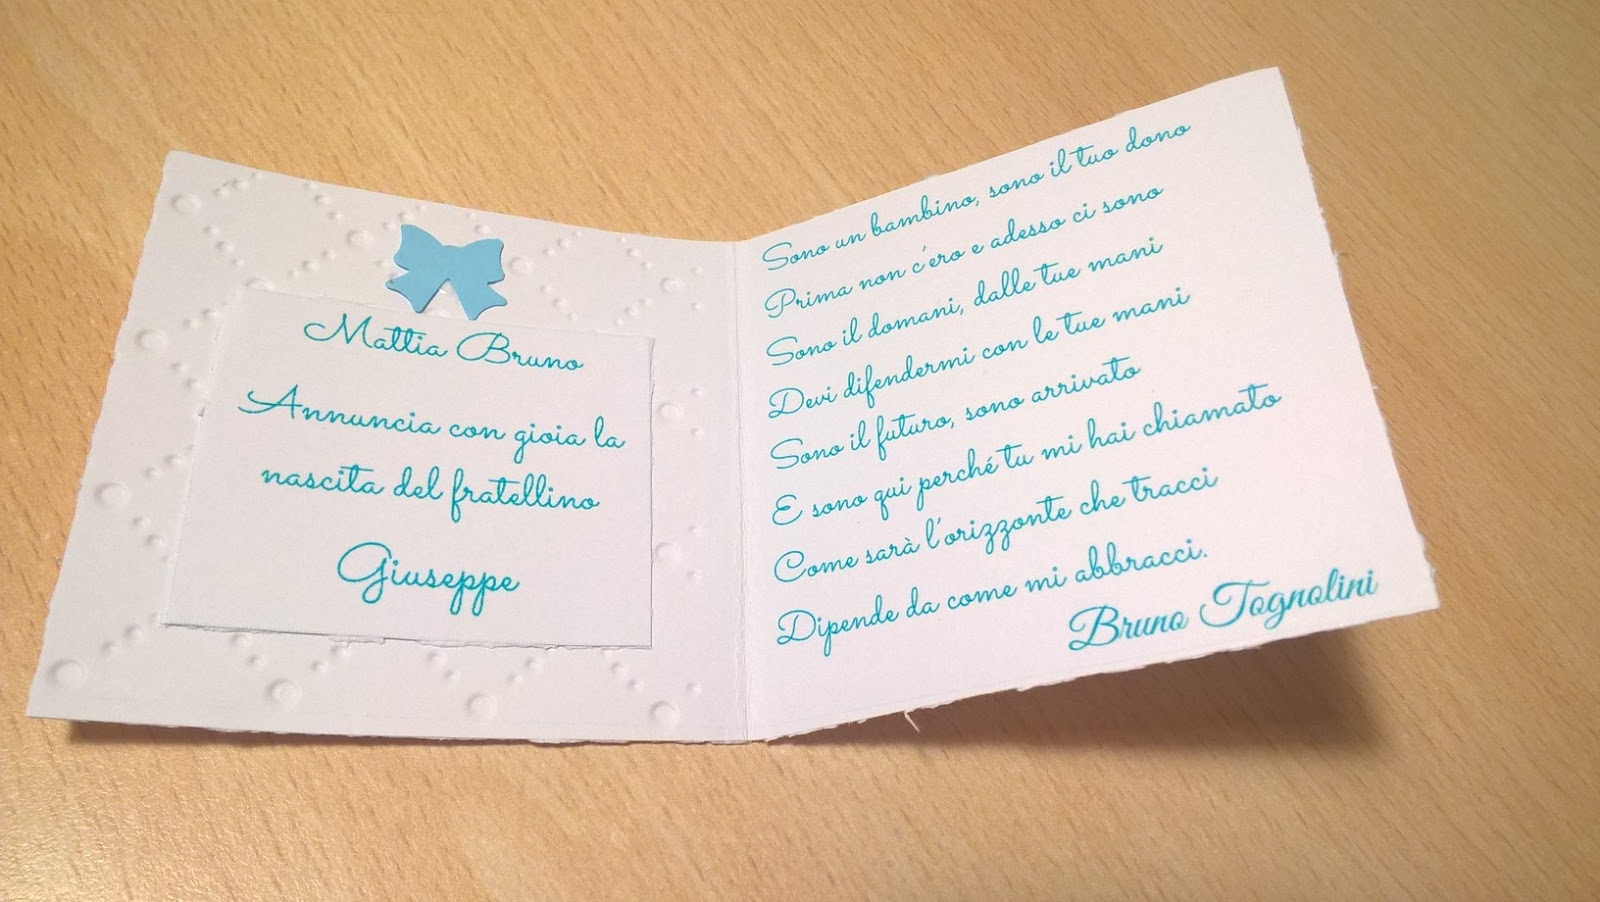 Mattia Bruno
Annuncia con gioia la
nascita del fratellino
Giuseppe
Sono un bambino, sono il tuo dono
Prima non c'ero e adesso ci sono
Sono il domani, dalle tue mani
Devi difendermi con le tue mani
Sono il futuro, sono arrivato
E sono qui perché tu mi hai chiamato
Come sarà l'orizzonte che tracci
Dipende da come mi abbracci.
Bruno Tognolini